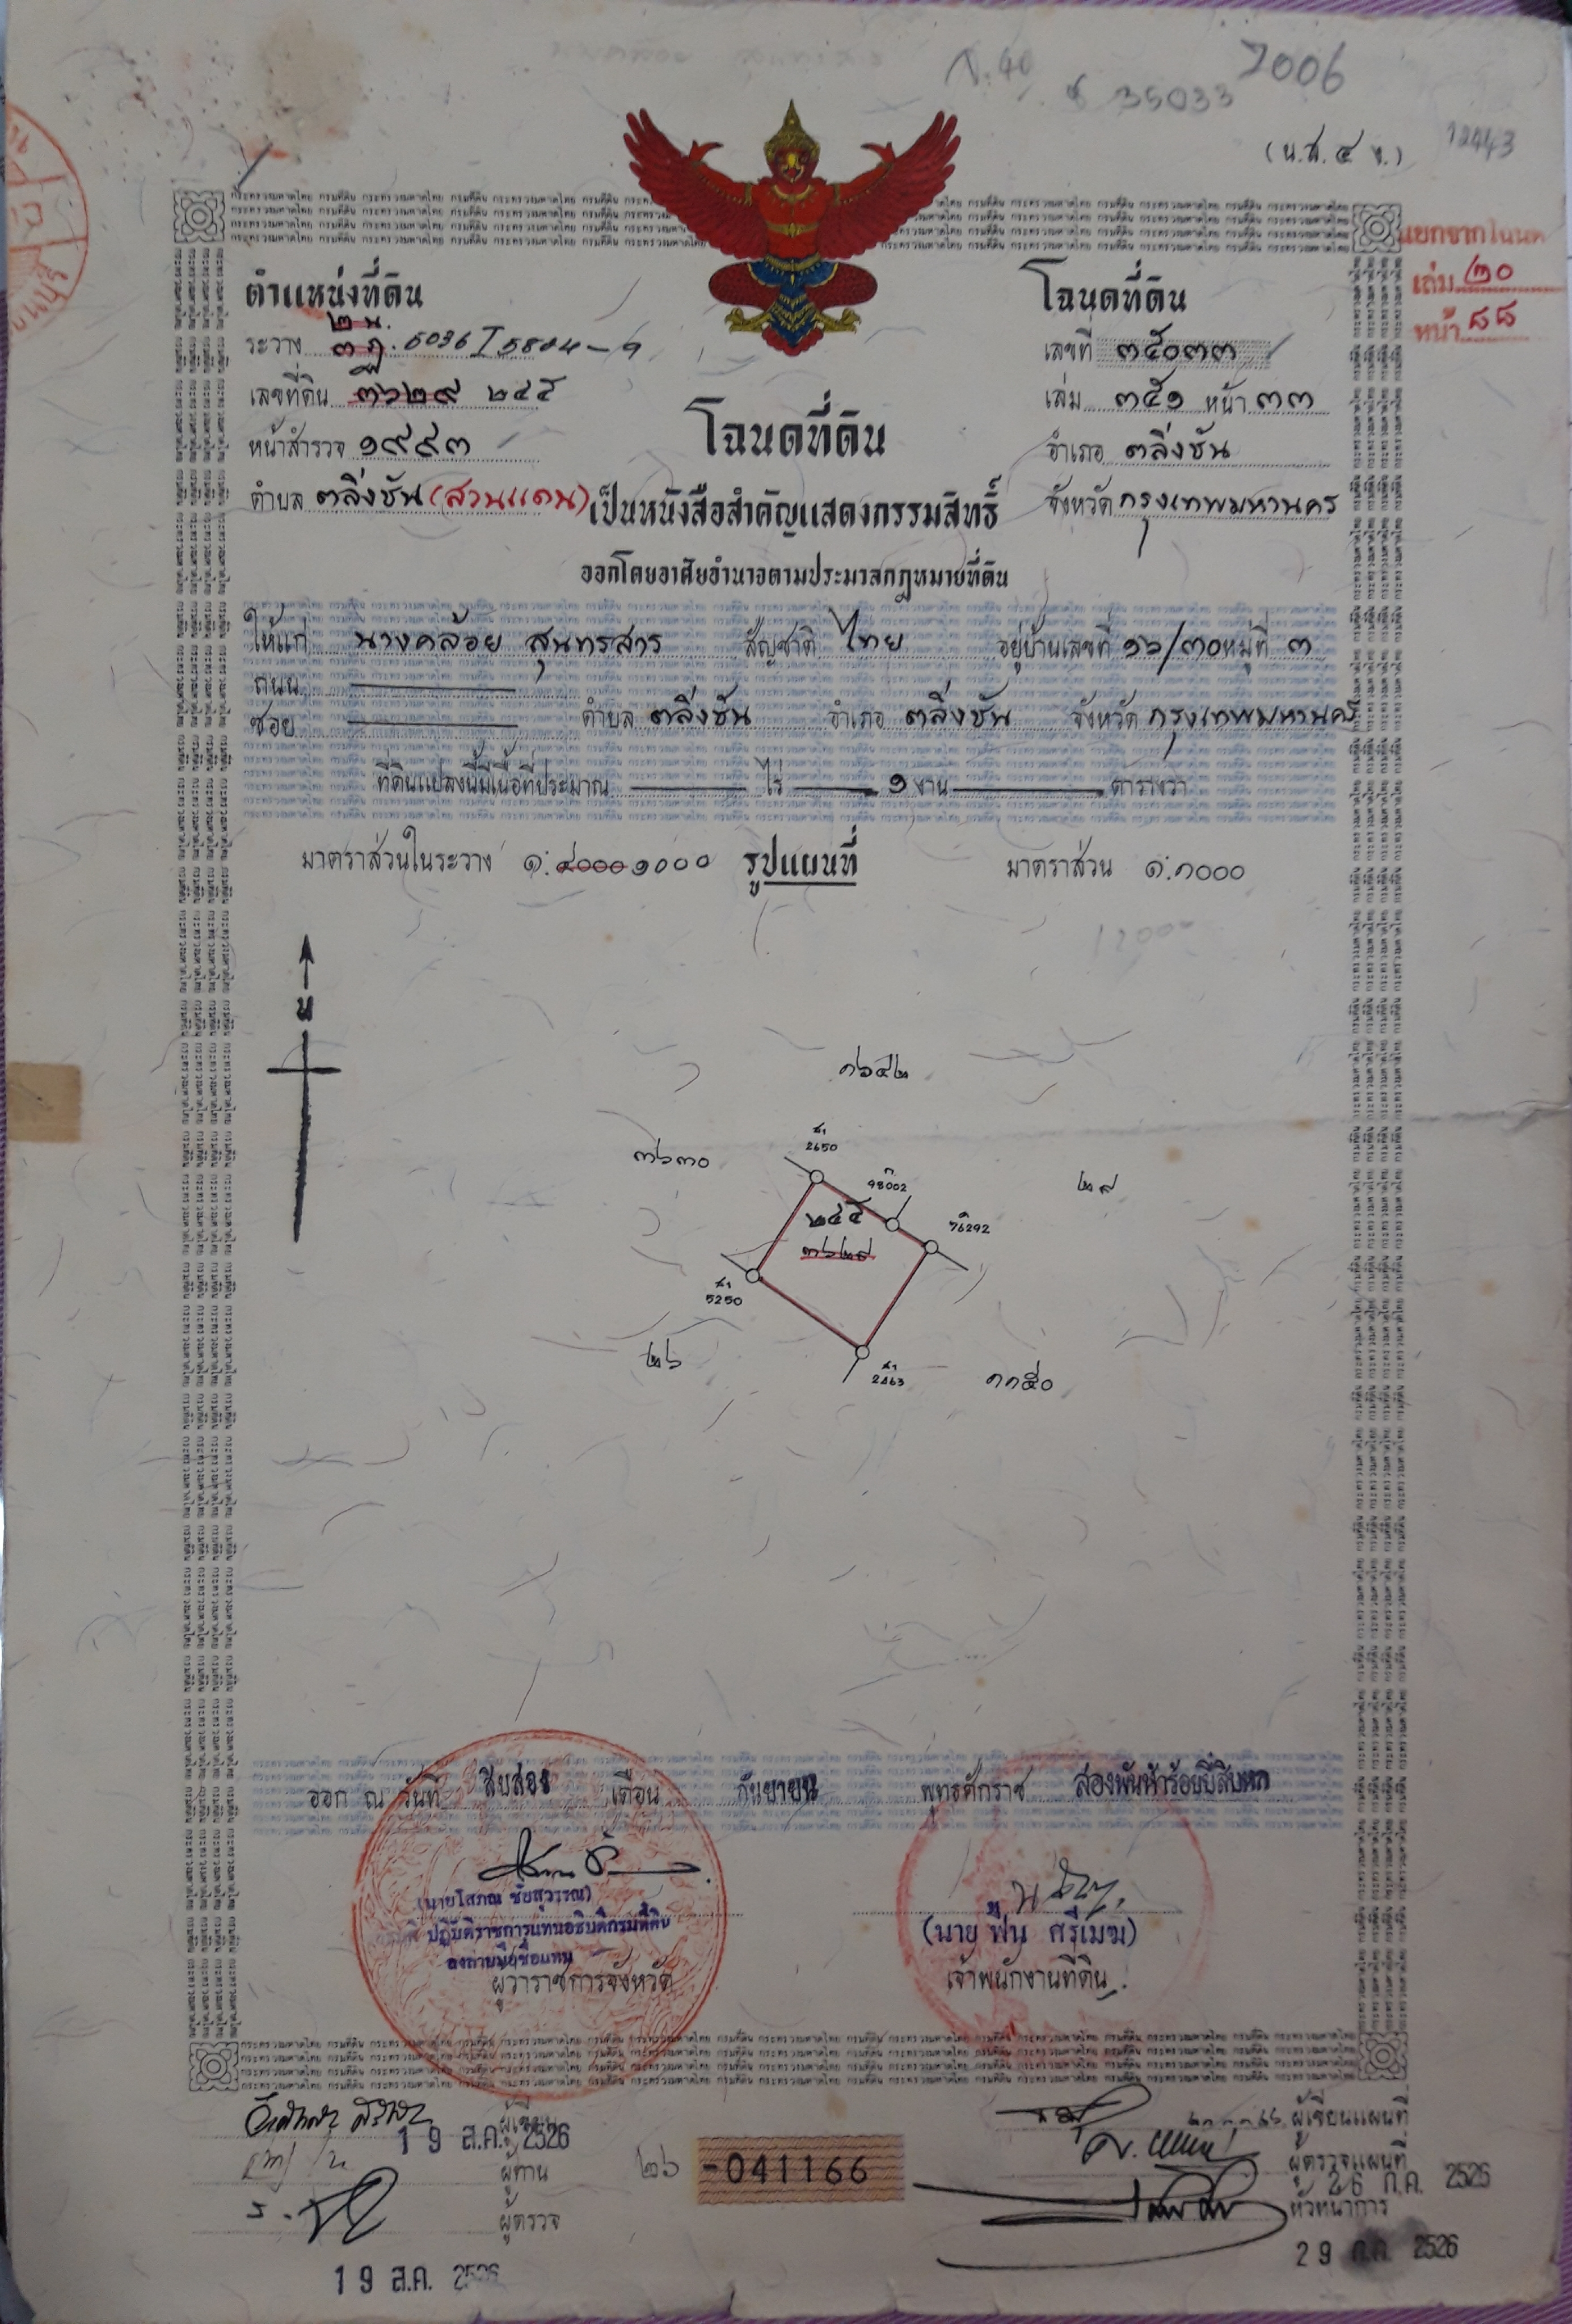 7006
35033
(น.ส.๔ จ.)
12443
แยกจากโฉนด
เล่ม ๒๐
หน้า ๘๘
ตำแหน่งที่ดิน
ระวาง 5036 I 5804-9
เลขที่ดิน ๓๖๒๙ ๒๔๕
หน้าสำรวจ ๑๙๙๓
ตำบล ตลิ่งชัน (สวนแดน)
โฉนดที่ดิน
เลขที่ ๓๕๐๓๓
เล่ม ๓๕๑ หน้า ๓๓
อำเภอ ตลิ่งชัน
จังหวัด กรุงเทพมหานคร
โฉนดที่ดิน
เป็นหนังสือสำคัญแสดงกรรมสิทธิ์
ออกโดยอาศัยอำนาจตามประมวลกฎหมายที่ดิน
ให้แก่ นางคล้อย สุนทรสาร สัญชาติ ไทย อยู่บ้านเลขที่ ๑๖/๓๐ หมู่ที่ ๓
ถนน
ซอย ตำบล ตลิ่งชัน อำเภอ ตลิ่งชัน จังหวัด กรุงเทพมหานคร
ที่ดินแปลงนี้มีเนื้อที่ประมาณ ไร่ ๑ งาน ตารางวา
มาตราส่วนในระวาง ๑:๔๐๐๐ ๑๐๐๐ รูปแผนที่ มาตราส่วน ๑:๑๐๐๐
น
๑๖๕๒
๓๖๓๐
2650
98002
๒๙
๒๔๕
76292
๓๖๒๙
5250
๒๖
2463
๑๑๕๐
ออก ณ วันที่ สิบสอง เดือน กันยายน พุทธศักราช สองพันห้าร้อยยี่สิบหก
(นายโสภณ ชัยสุวรรณ)
ปฏิบัติราชการแทนอธิบดีกรมที่ดิน
ลงลายมือชื่อแทน
ผู้ว่าราชการจังหวัด
(นาย ฟื้น ศรีเมฆ)
เจ้าพนักงานที่ดิน
ผู้เขียน
19 ส.ค. 2526
ผู้ทาน
ผู้ตรวจ
19 ส.ค. 2526
๒๖ -041166
ผู้เขียนแผนที่
ผู้ตรวจแผนที่
26 ก.ค. 2526
หัวหน้าการ
29 ก.ค. 2526